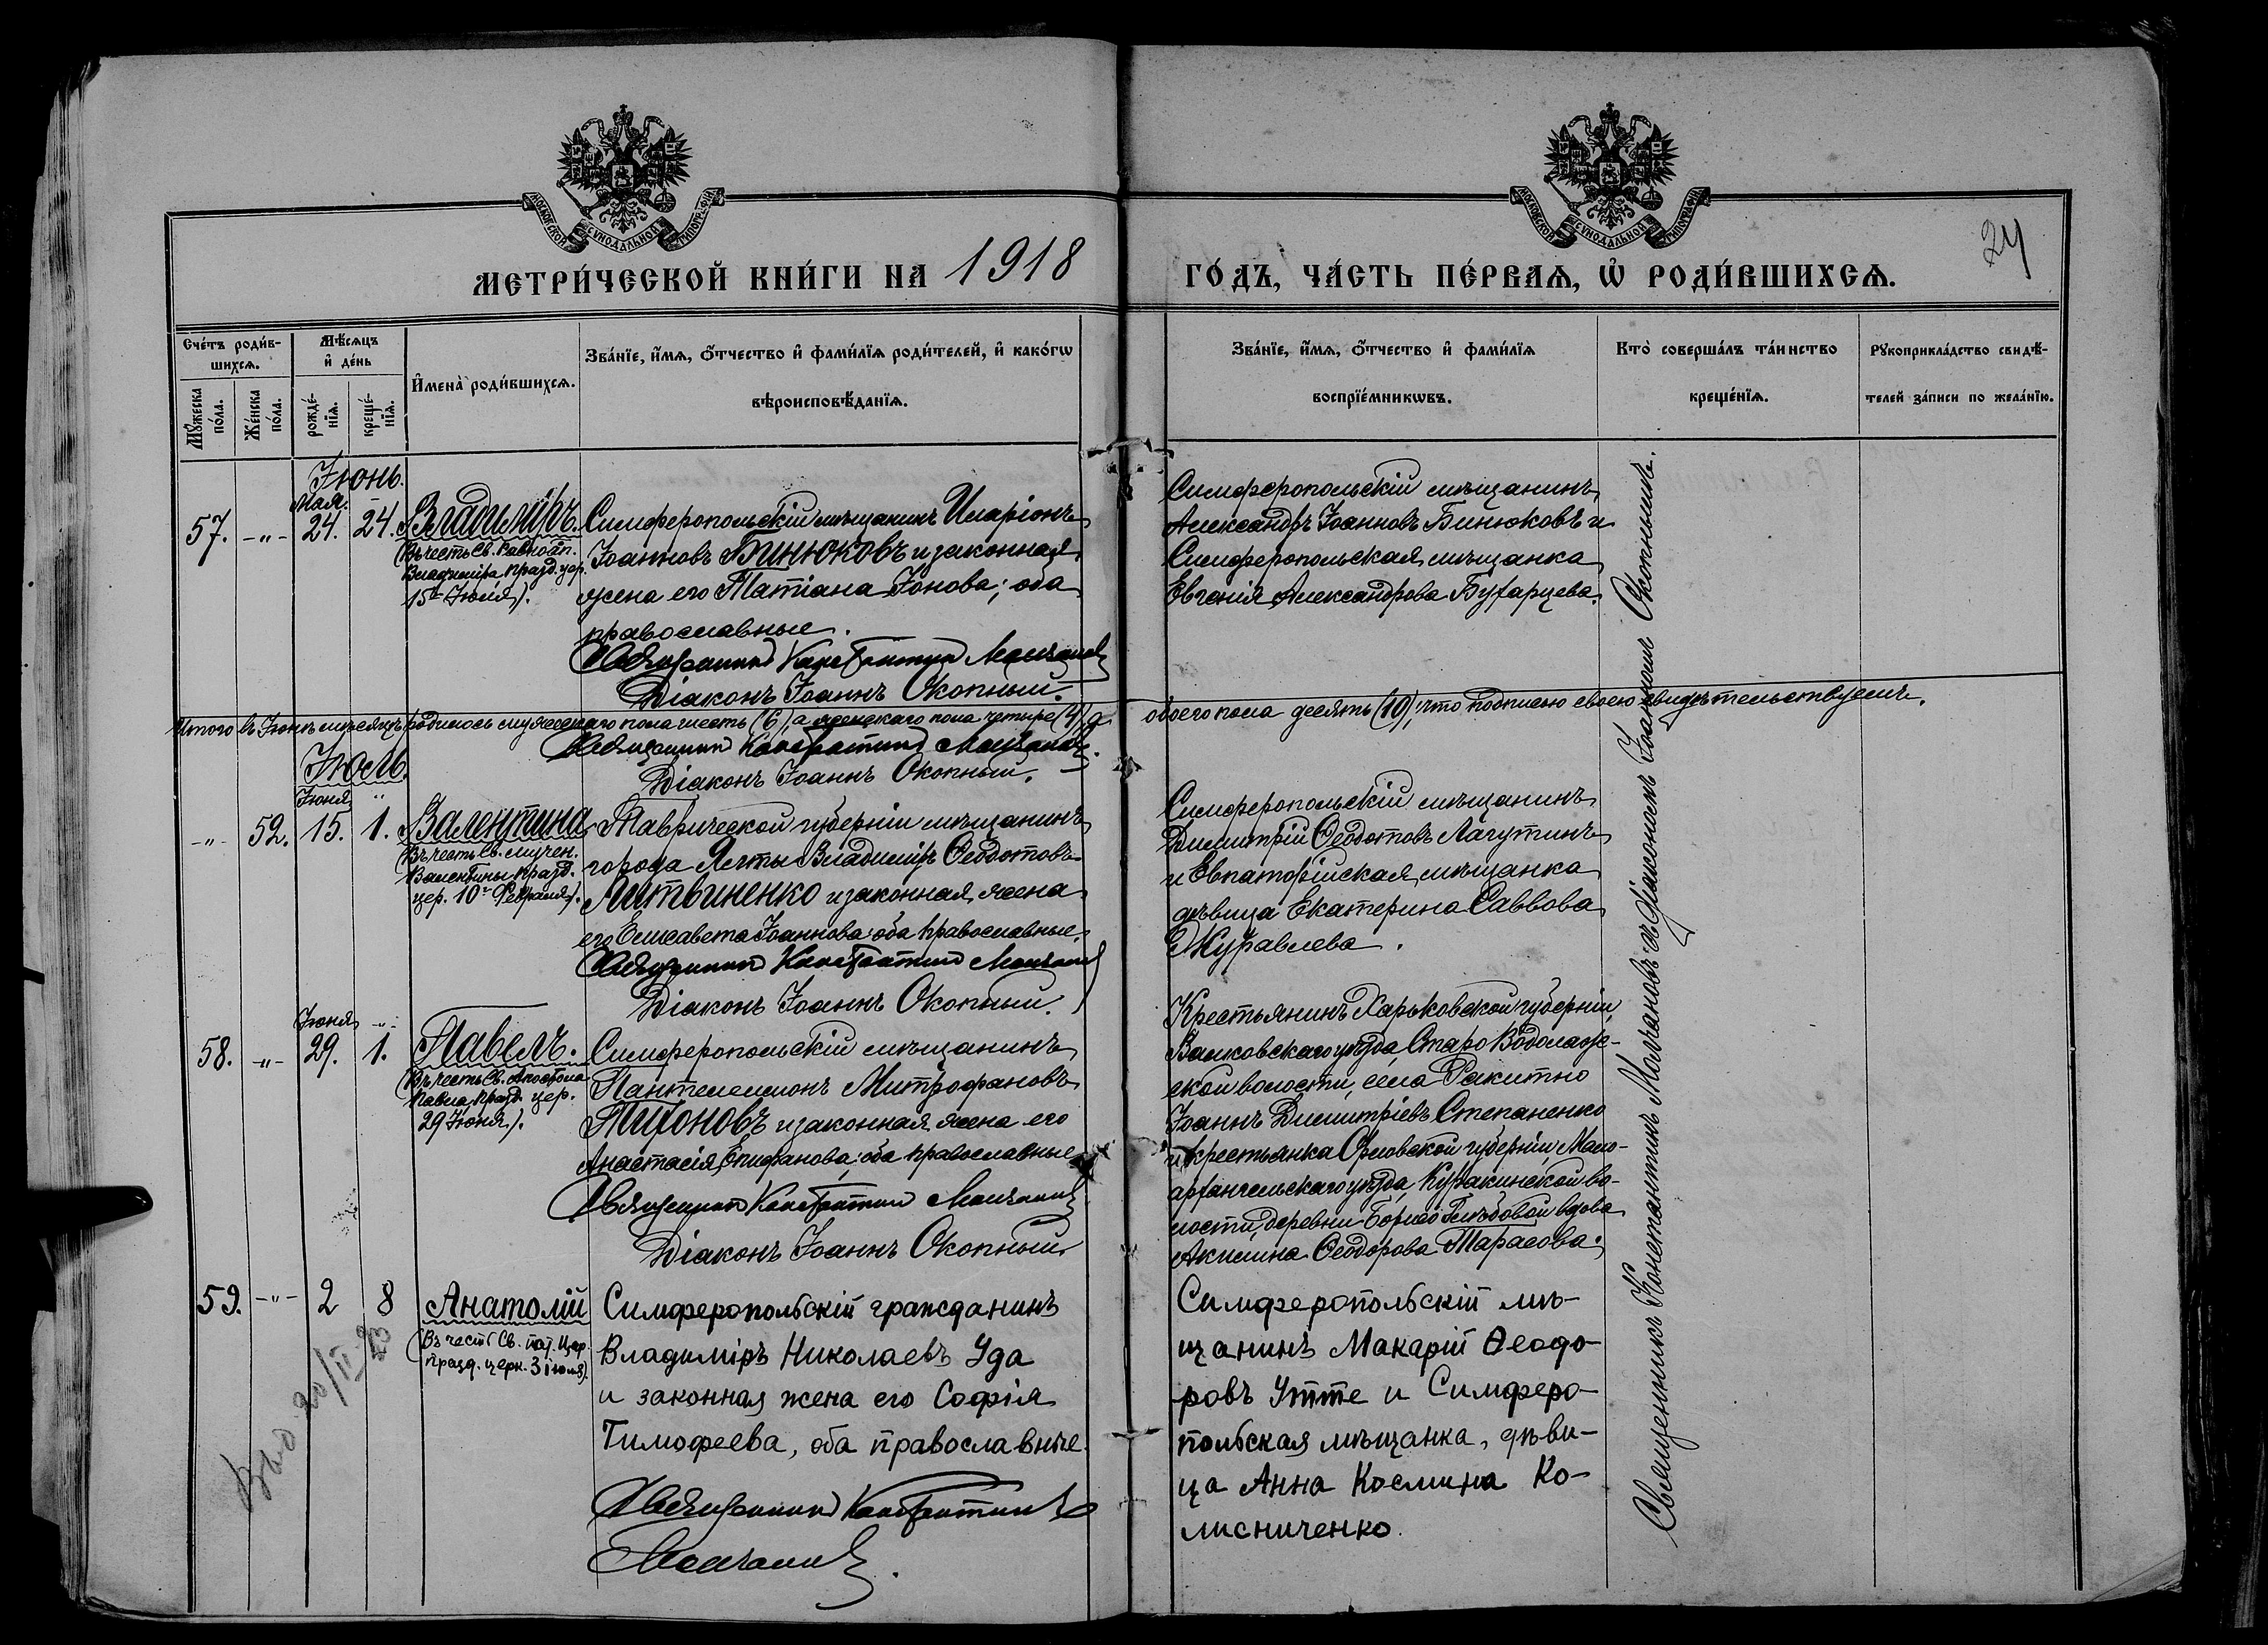 МОСКОВСКОЙ СУНОДАЛЬНОЙ ТИПОГРАФІИ
МОСКОВСКОЙ СУНОДАЛЬНОЙ ТИПОГРАФІИ
24
МЕТРИ́ЧЕСКОЙ КНИ́ГИ НА 1918
ГО́ДЪ, ЧА́СТЬ ПЕ́РВАѦ, Ѡ҆ РОДИ́ВШИХСѦ.
Сче́тъ роди́в-
шихсѧ.
Мꙋ́жеска по́ла.
Же́нска по́ла.
Мѣ́сѧцъ
и҆ де́нь
рожде́-
нїѧ.
креще́-
нїѧ.
И҆мена̀ роди́вшихсѧ.
Зва́нїе, и҆́мѧ, ѻ҆́тчество и҆ фами́лїѧ роди́телей, и҆ како́гѡ
вѣроисповѣ́данїѧ.
Зва́нїе, и҆́мѧ, ѻ҆́тчество и҆ фами́лїѧ
воспрїе́мникѡвъ.
Кто̀ соверша́лъ та́инство
креще́нїѧ.
Рꙋкоприкла́дство свидѣ́-
телей за́писи по жела́нїю.
Іюнь.
Мая.
57. -„- 24. 24. Владиміръ.
(Въ честь Св. Равноап.
Владиміра, празд. цер.
15го Іюля).
Симферопольскій мѣщанинъ Иларіонъ
Іоанновъ Бинюковъ и законная
жена его Татіана Іонова; оба
православные.
Священникъ Константинъ Молчановъ
Діаконъ Іоаннъ Окопный.
Симферопольскій мѣщанинъ
Александръ Іоанновъ Бинюковъ и
Симферопольская мѣщанка
Евгенія Александрова Бухарцева.
Итого въ Іюнѣ мѣсяцѣ родилось мужескаго пола шесть (6), а женскаго пола четыре (4), а
обоего пола десять (10), что подписью своею свидѣтельствуемъ.
Священникъ Константинъ Молчановъ.
Діаконъ Іоаннъ Окопный.
Іюль.
Іюня „
-„- 52. 15. 1. Валентина
(Въ честь Св. мучен.
Валентины, празд.
цер. 10го Февраля).
Таврической губерніи мѣщанинъ
города Ялты Владиміръ Ѳеодотовъ
Литвиненко и законная жена
его Елисавета Іоаннова; оба православные.
Священникъ Константинъ Молчановъ
Діаконъ Іоаннъ Окопный.
Симферопольскій мѣщанинъ
Димитрій Ѳеодотовъ Лагутинъ
и Евпаторійская мѣщанка
дѣвица Екатерина Саввова
Журавлева.
Іюня -„-
58. -„- 29. 1. Павелъ.
(Въ честь Св. Апостола
Павла, празд. цер.
29 Іюня).
Симферопольскій мѣщанинъ
Пантелеимонъ Митрофановъ
Тихоновъ и законная жена его
Анастасія Епифанова; оба православные
Священникъ Константинъ Молчановъ
Діаконъ Іоаннъ Окопный
Крестьянинъ Харьковской губерніи,
Валковскаго уѣзда, Старо Водолаж-
ской волости, села Ракитно
Іоаннъ Димитріевъ Степаненко
и крестьянка Орловской губерніи, Мало-
архангельскаго уѣзда, Куракинской во-
лости, деревни Борисо Глѣбовой вдова
Акилина Ѳеодорова Тарасова.
59. -„- 2 8 Анатолій
(Въ честь Св. пат. Цер.
празд. церк. 3 іюля).
Симферопольскій гражданинъ
Владиміръ Николаевъ Уда
и законная жена его Софія
Тимофеева, оба православные.
Священникъ Константинъ
Молчановъ.
Симферопольскій мѣ-
щанинъ Макарій Ѳеодо-
ровъ Утте и Симферо-
польская мѣщанка, дѣви-
ца Анна Космина Ко-
лисниченко.
Священникъ Константинъ Молчановъ и діакономъ Іоанномъ Окопнымъ.